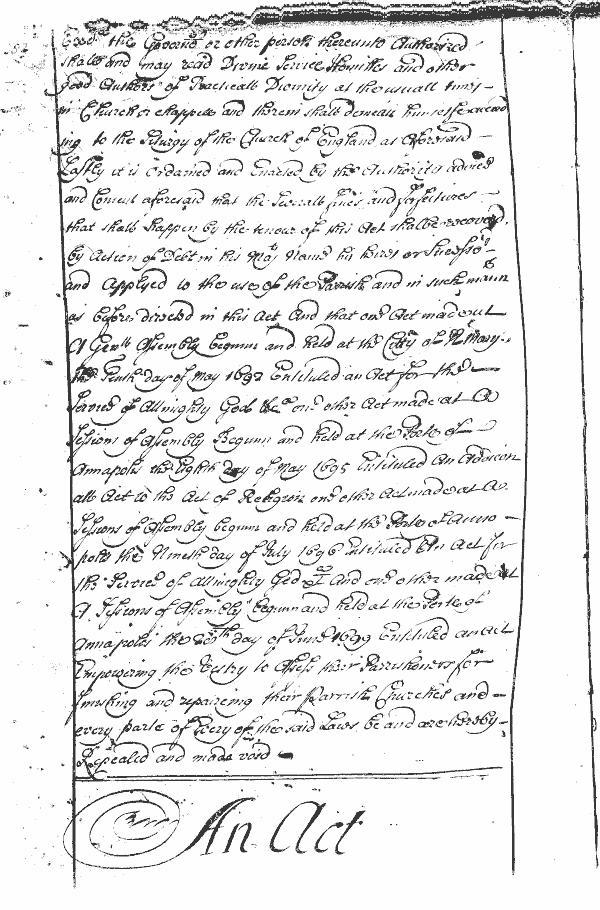 Good the Governr or other person thereunto Authorised
shall and may read Divine Service Homilies and other
good Authors of Practicall Divinity at the usuall times
in Church or Chappell and therein shall demean himselfe
ing to the Liturgy of the Church of England as aforesaid
Lastly it is Ordained and Enacted by the Authority advice
and Consent aforesaid that the Severall fines and forfeitures
that shall happen by the tenour of this Act shall be recovered
by Action of Debt in his Majts Name his heires or Successrs
and Applyed to the use of the Parrish and in such mann
as before directed in this Act And that one Act made att
A Genll Assembly begunn and held at the Citty of St Marys
the Tenth day of May 1692 Entituled an Act for the
Service of Allmighty God &c one other Act made at A
Sessions of Assembly Begunn and held at the Porte of
Annapolis the Eighth day of May 1695 Entituled An Addicon
all Act to the Act of Religion one other Act made at A
Sessions of Assembly begunn and held at the Porte of Anna
polis the Nineth day of July 1696 Entituled An Act for
the Service of Allmighty God &c And one other made at
A Sessions of Assembly begunn and held at the Porte of
Annapolis the day of June 1699 Entituled an Act
Empowering the Vestry to Assess their Parrishoners for
finishing and repaireing their Parrish Churches and
every parte of Every of the said Laws be and are hereby
Repealed and made void
An Act